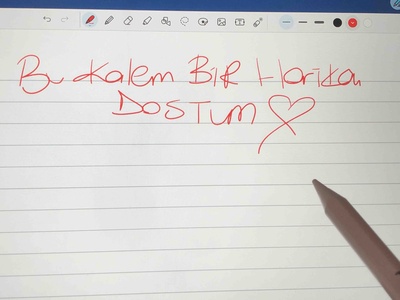 Bu Kalem BiR Harika
DOSTUM